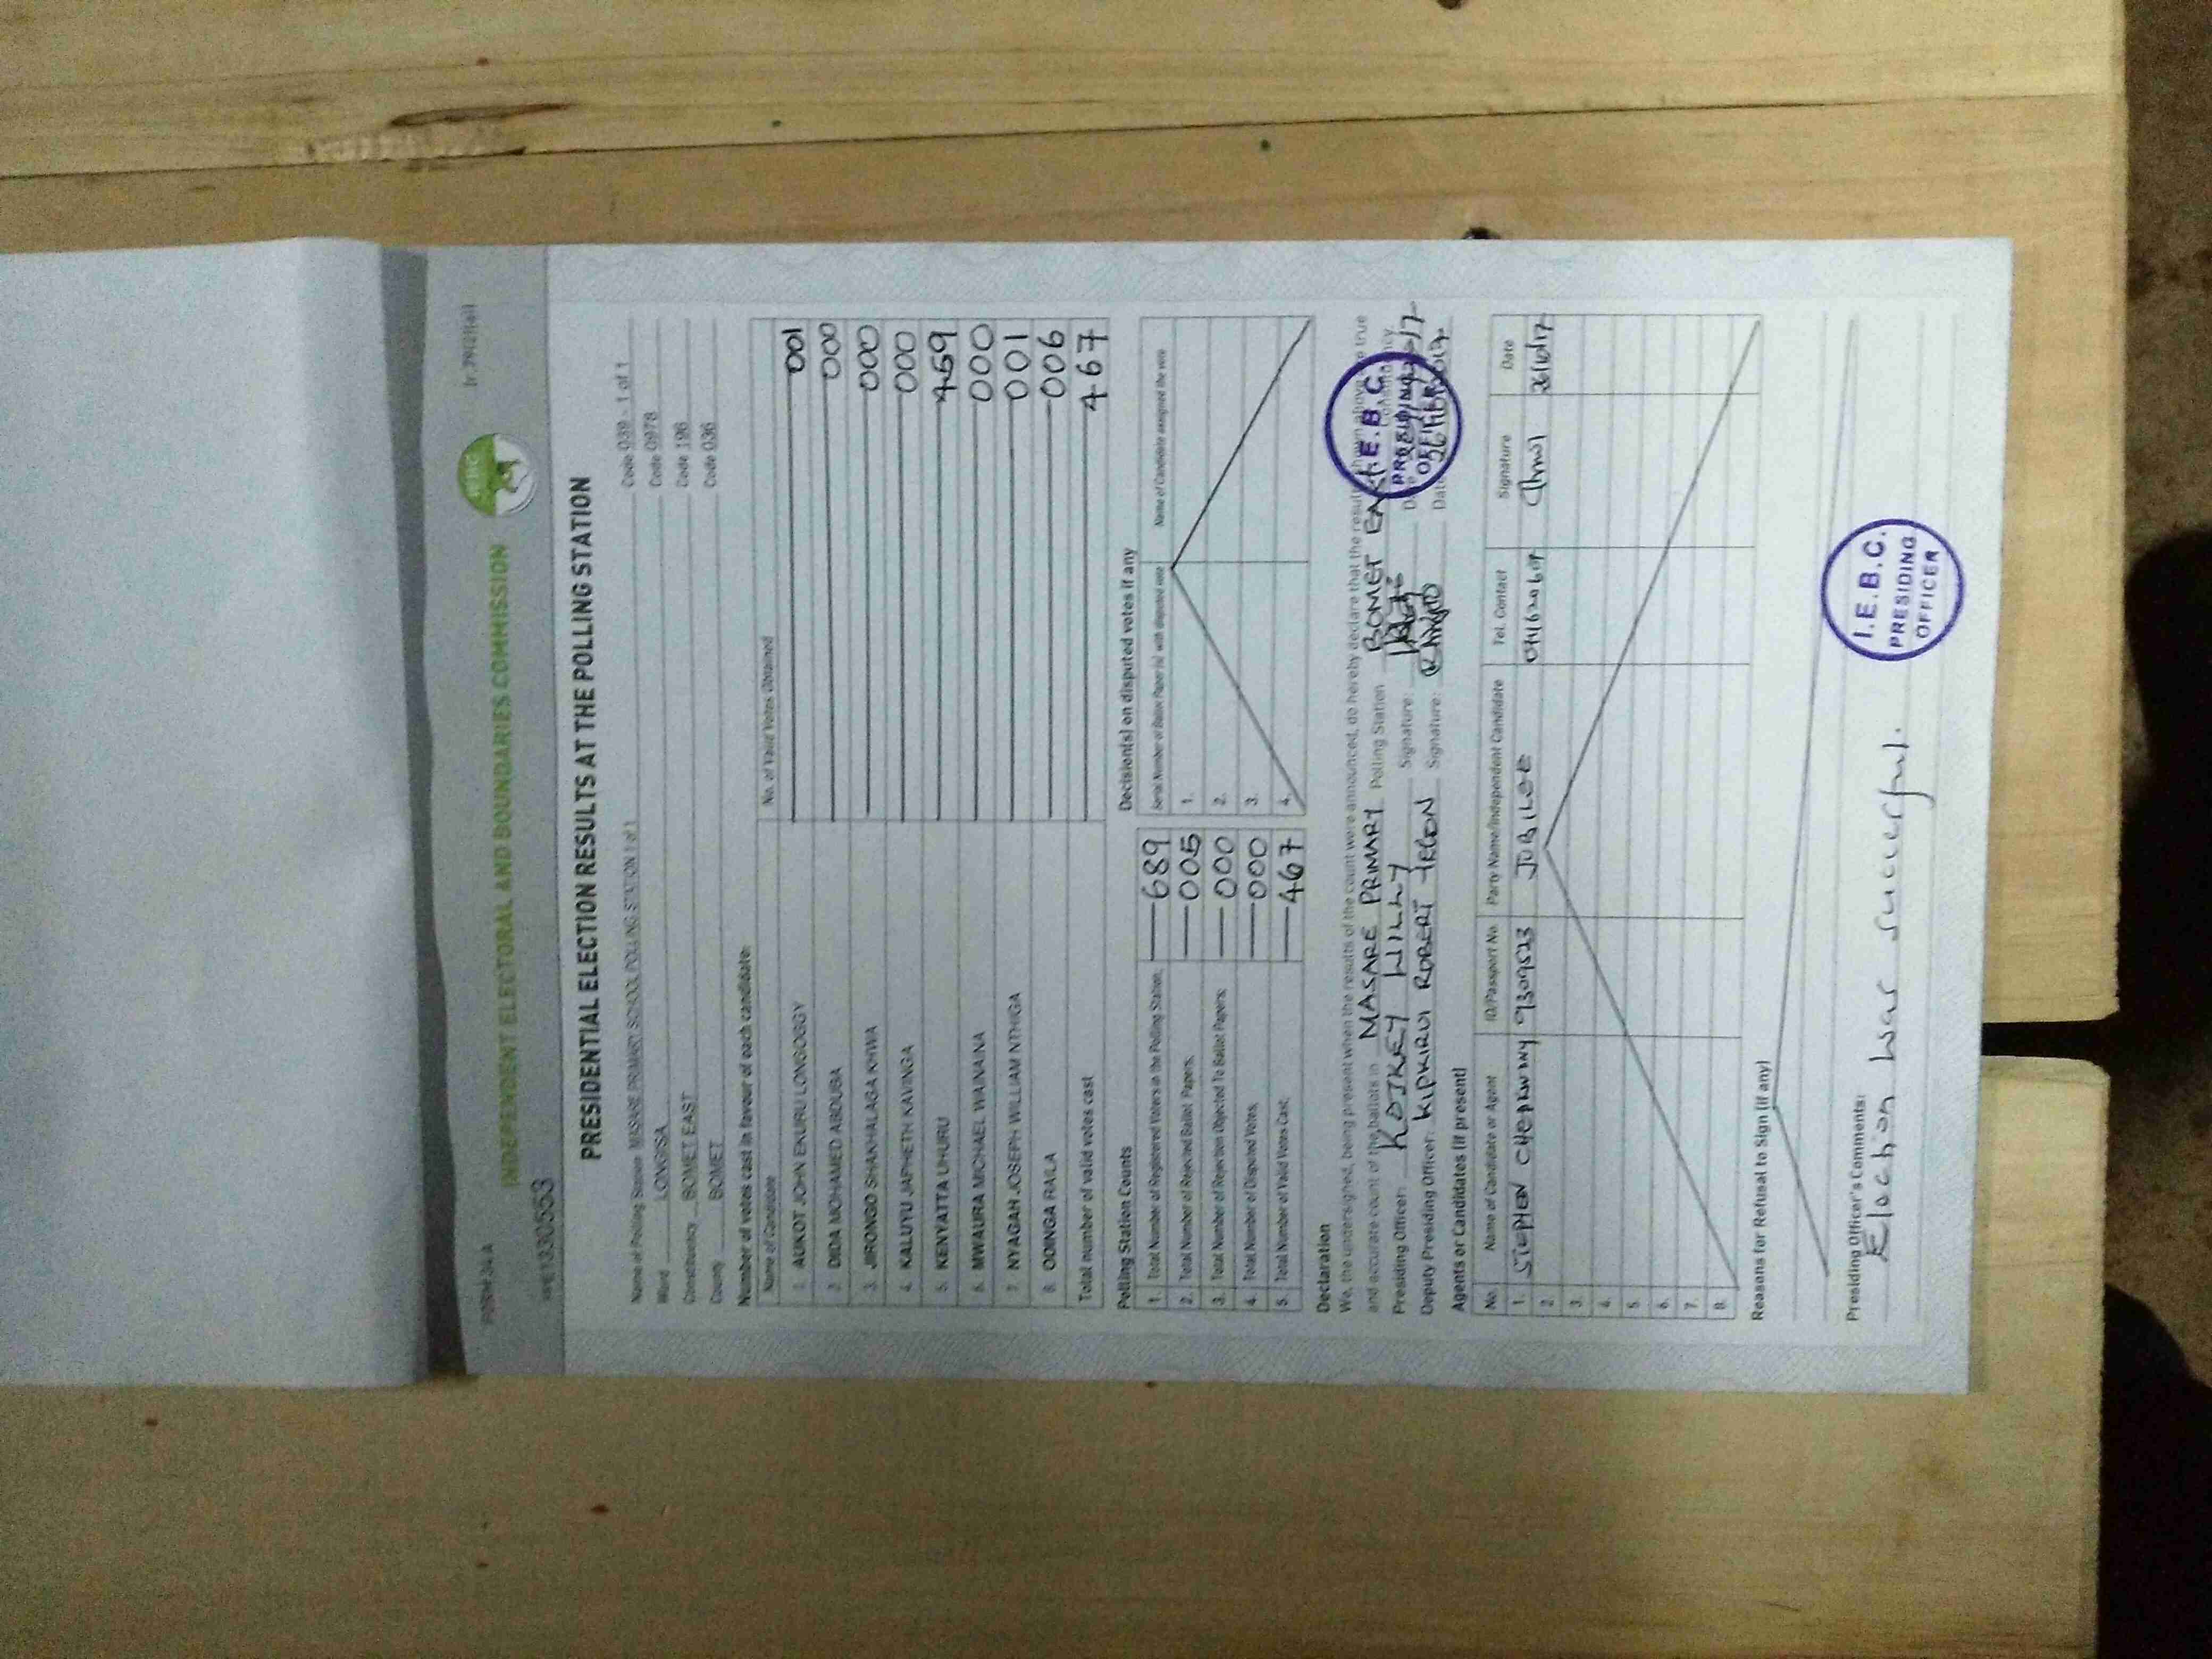 FORM 34 A
INDEPENDENT ELECTORAL AND BOUNDARIES COMMISSION
PRESIDENTIAL ELECTION RESULTS AT THE POLLING STATION
Name of Polling Station MASARE PRIMARY SCHOOL POLLING STATION 1 of 1 Code 039 - 1 of 1
Ward LONGISA Code 0978
Constituency BOMET EAST Code 196
County BOMET Code 036
Number of votes cast in favour of each candidate:
Name of Candidate No. of Valid Votes Obtained
1. AUKOT JOHN EKURU LONGOGGY 001
2. DIDA MOHAMED ABDUBA 000
3. JIRONGO SHAKHALAGA KHWA 000
4. KALUYU JAPHETH KAVINGA 000
5. KENYATTA UHURU 459
6. MWAURA MICHAEL WAINAINA 000
7. NYAGAH JOSEPH WILLIAM NTHIGA 001
8. ODINGA RAILA 006
Total number of valid votes cast 467
Polling Station Counts
1. Total Number of Registered Voters in the Polling Station. 689
2. Total Number of Rejected Ballot Papers. 005
3. Total Number of Rejection Objected To Ballot Papers. 000
4. Total Number of Disputed Votes. 000
5. Total Number of Valid Votes Cast. 467
Decision(s) on disputed votes if any
Serial Number of Ballot Paper (s) with disputed vote Name of Candidate assigned the vote
1.
2.
3.
4.
Declaration
We, the undersigned, being present when the results of the count were announced, do hereby declare that the results shown above are true
and accurate count of the ballots in MASARE PRIMARY Polling Station BOMET EAST
Presiding Officer: WILLY Signature:
Deputy Presiding Officer: KIPKIRUI ROBERT Signature:
I.E.B.C.
PRESIDING
OFFICER
Agents or Candidates (if present)
No. Name of Candidate or Agent ID/Passport No. Party Name/Independent Candidate Tel. Contact Signature Date
1. STEPHEN 9309523 JUBILEE 26/10/17
2.
3.
4.
5.
6.
7.
8.
Reasons for Refusal to Sign (if any)
Presiding Officer's Comments:
Election was successful.
I.E.B.C.
PRESIDING
OFFICER